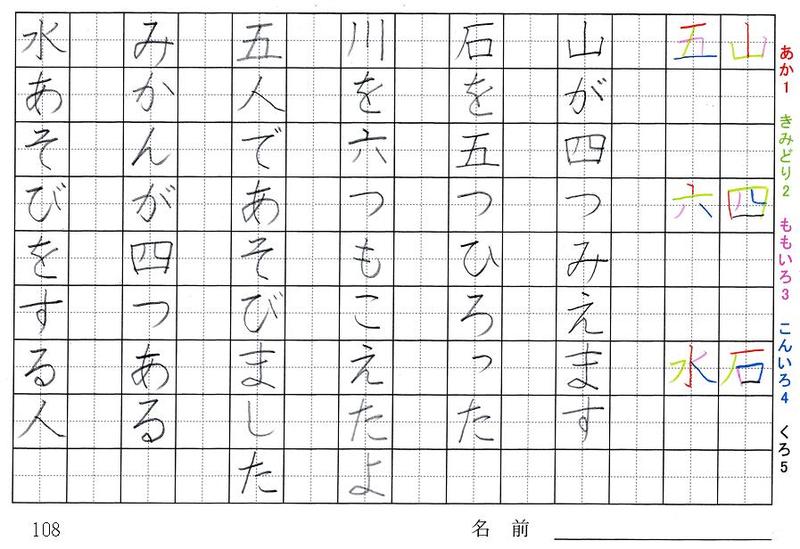 あか1 きみどり2 ももいろ3 こんいろ4 くろ5
山四石
五六水
山が四つみえます
石を五つひろった
川を六つもこえたよ
五人であそびました
みかんが四つある
水あそびをする人
108 名前